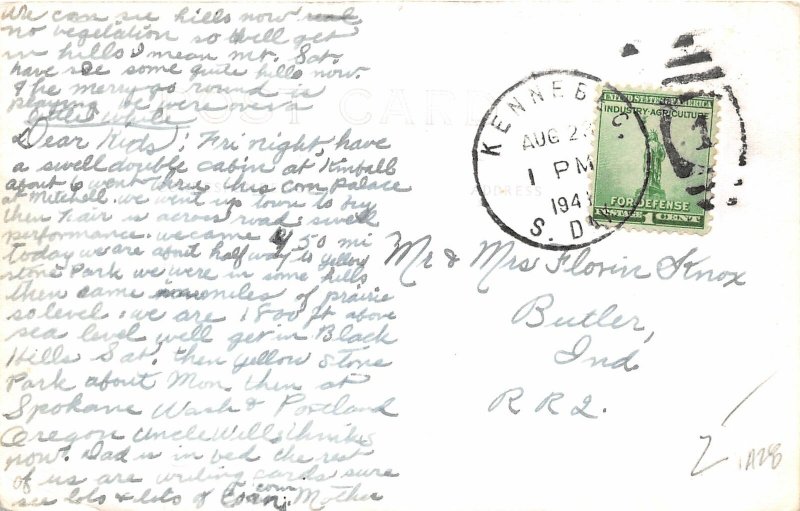 We can see hills now real
no vegetation so will get
in hills I mean mt. Sat.
have see some quite hills now.
The merry go round is
playing we were over a
little while
POST CARD
Dear Kids; Fri night, have
a swell double cabin at Kimball
about 16 went thru this Corn Palace
at Mitchell we went up town to
then Fair is across road swell
performance. we came 450 mi
today we are about half way to yellow
stone Park we were in some hills
then came miles of prairie
so level. we are 1800 ft above
sea level well get in Black
Hills Sat. then yellow stone
Park about Mon. then at
Spokane Wash & Portland
Oregon Uncle Will thinks
now. Dad is in bed the rest
of us are writing cards sure
see lots & lots of corn. Mother
ADDRESS
KENNEBEC.
AUG 2
1 PM
194
S. D
UNITED STATES OF AMERICA
INDUSTRY-AGRICULTURE
FOR DEFENSE
POSTAGE 1 CENT
Mr & Mrs Florin Knox
Butler,
Ind.
R R 2.